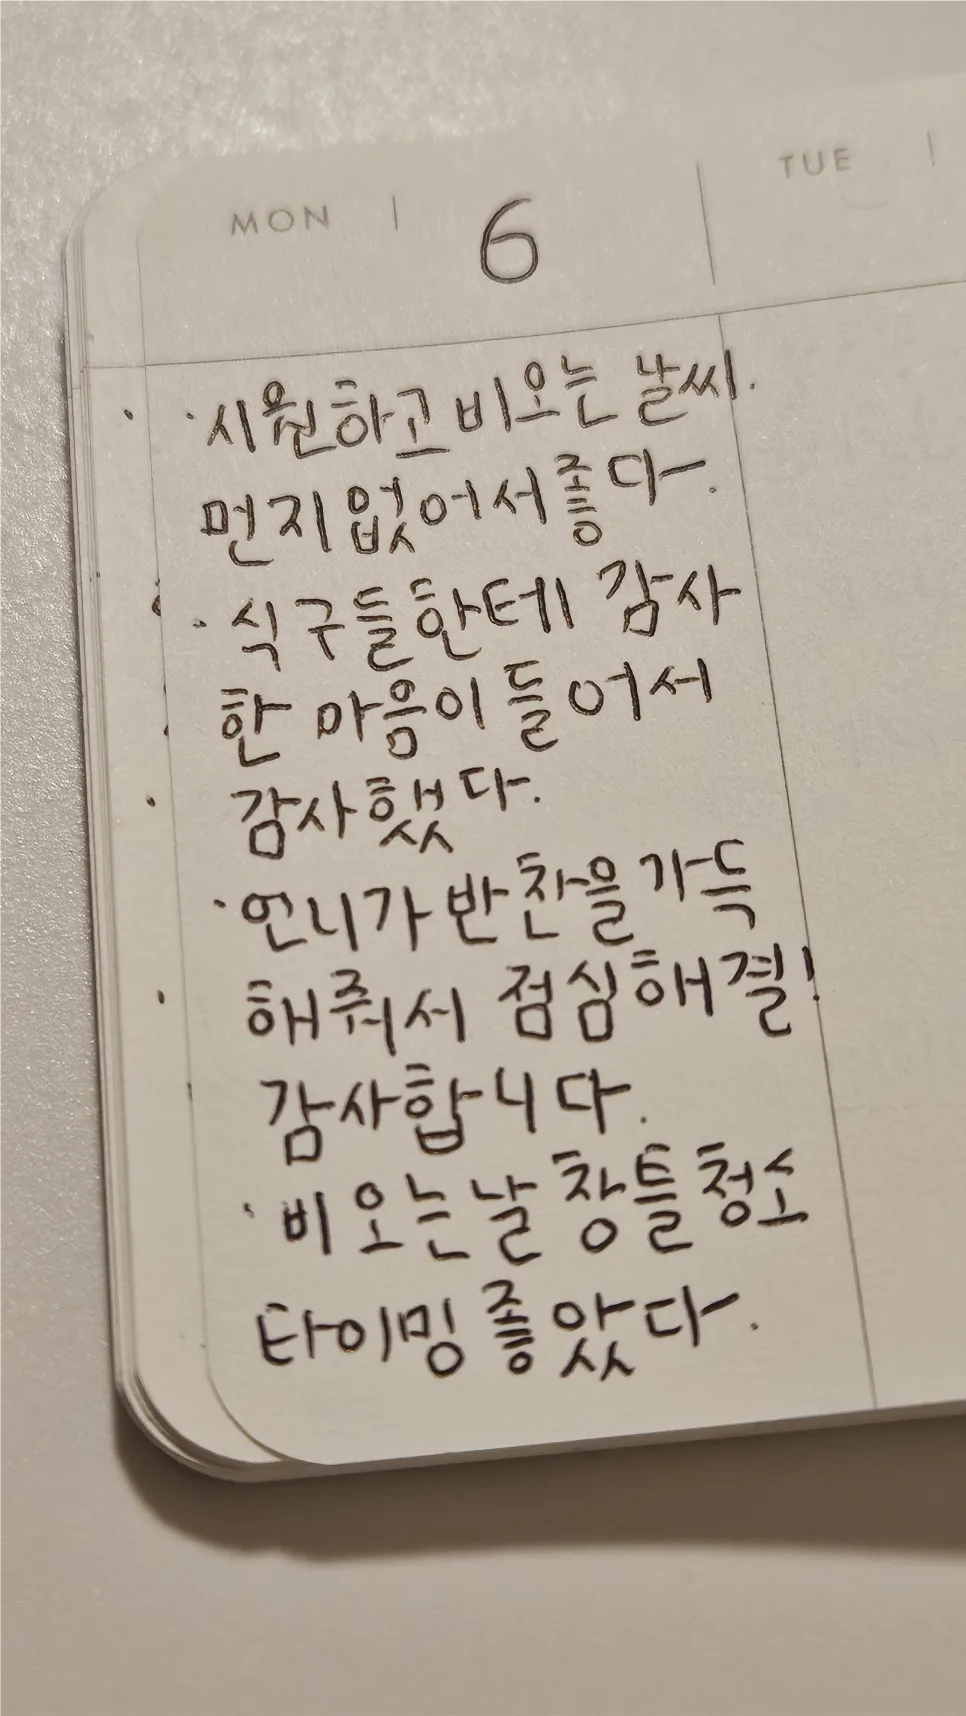 MON | 6
TUE |
· 시원하고 비오는 날씨.
먼지없어서좋다.
· 식구들한테 감사
한 마음이 들어서
감사했다.
· 언니가 반찬을 가득
해줘서 점심해결!
감사합니다.
· 비오는날 창틀청소
타이밍좋았다.